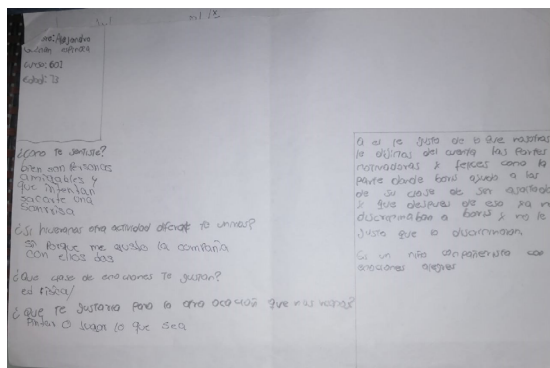 Alejandro
curso: 601
edad: 
¿Como te sentiste?
bien son personas
amigables y
que intentan
sacarte una
sonrisa
¿Si hicieramos otra actividad diferente te unirias?
si porque me gusto la compañia
con ellas dos
¿Que clase de emociones te gustan?
ed fisica/
¿Que te gustaria para la otra ocacion que nos veamos?
Pintar o jugar lo que sea
a el le gusto de lo que nosotras
le dijimos del cuento las partes
motivadoras y felices como la
parte donde boris ayuda a los
de su clase de ser
y que despues de eso ya no
discriminaban a boris y no le
gusto que lo discriminaran.
Es un niño con
emociones alegres